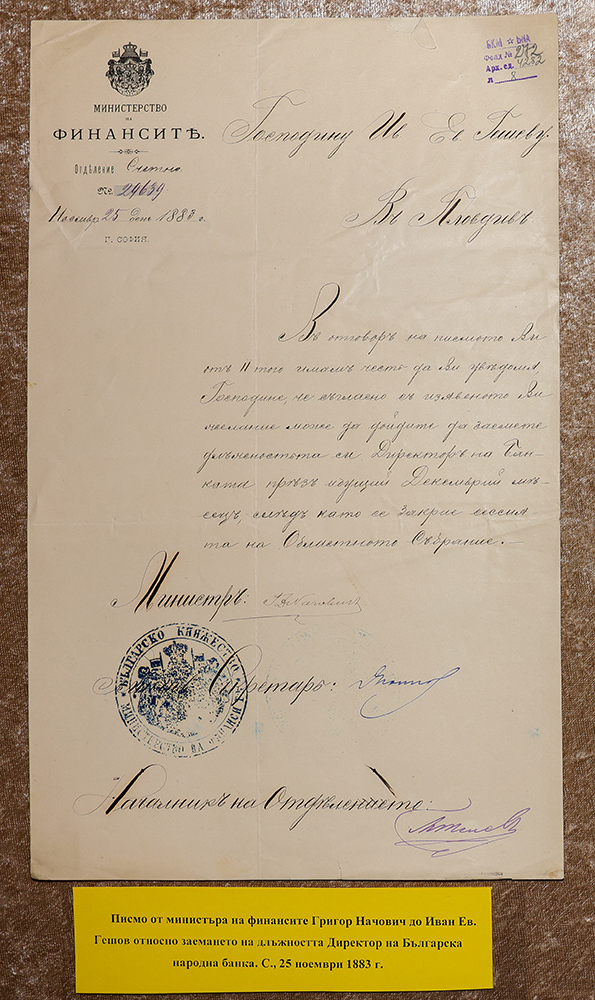 БКМ ☆ БНА
Фонд № 272
Арх. ед. 4252
л 8
МИНИСТЕРСТВО
НА
ФИНАНСИТѢ.
Отдѣление Сметно
№ 29639
Ноемвр. 25 день 1883 г.
Г. СОФИЯ.
Господину Ив Ев. Гешову.
Въ Пловдивъ
Въ отговоръ на писмото Ви
отъ 11 того имамъ честь да Ви увѣдомя,
Господине, че съгласно съ изявеното Ви
желание може да дойдите да заемете
длъжностьта си Директоръ на Бан-
ката прѣзъ идущий Декемврий мѣ-
сецъ, слѣдъ като се закрие сесия-
та на Областното Събрание.—
Министръ:
БЪЛГАРСКО КНЯЖЕСТВО
МИНИСТЕРСТВО НА ФИНАНСИ
Секретарь:
Началникъ на Отдѣлението:
Писмо от министъра на финансите Григор Начович до Иван Ев.
Гешов относно заемането на длъжността Директор на Българска
народна банка. С., 25 ноември 1883 г.